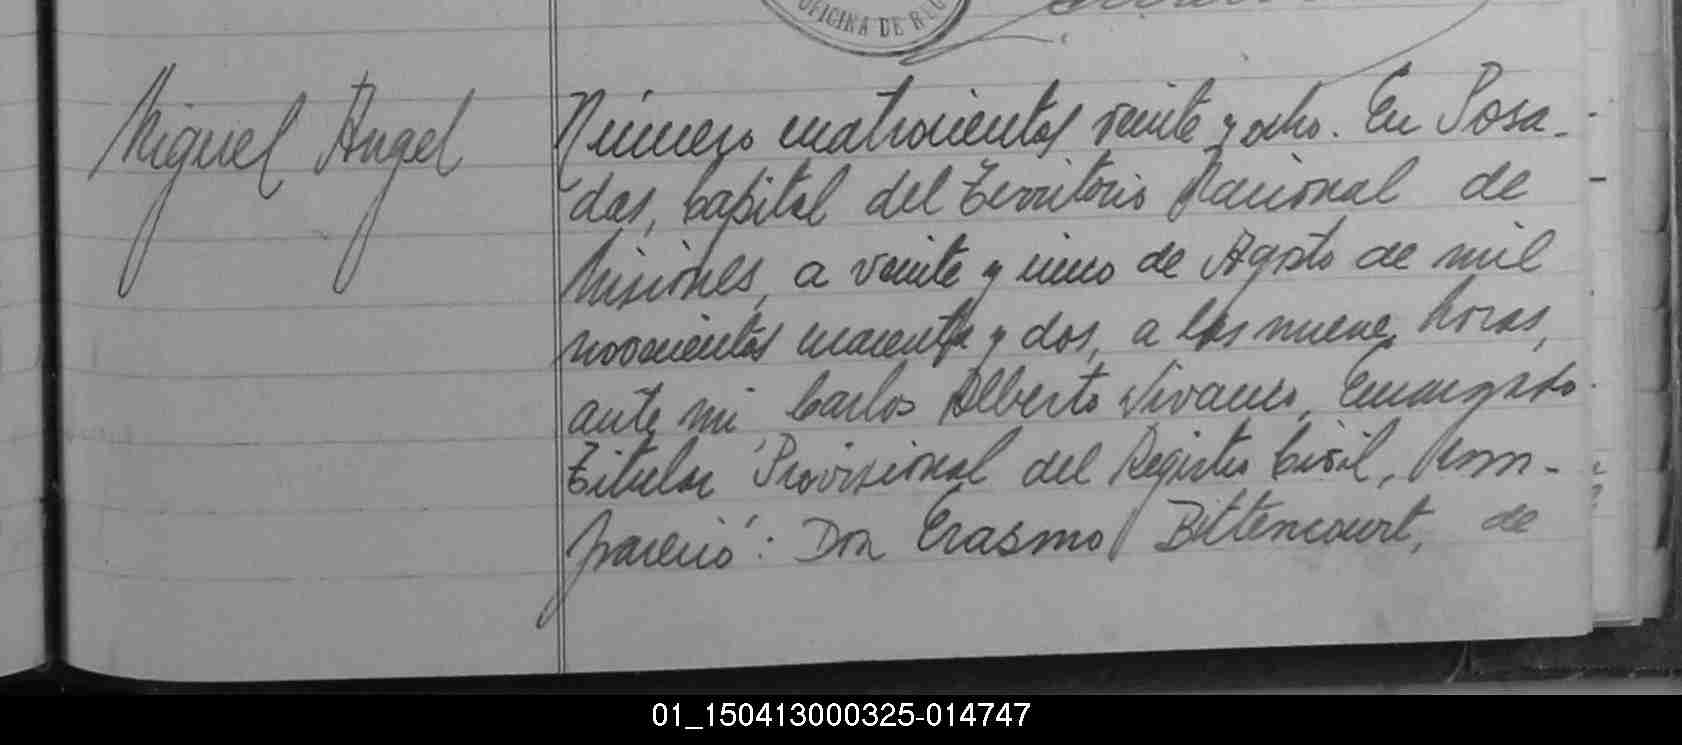 OFICINA DE REG
Miguel Angel
Número cuatrocientos veinte y ocho. En Posa-
das, Capital del Territorio Nacional de
Misiones, a veinte y cinco de Agosto de mil
novecientos cuarenta y dos, a las nueve horas,
ante mi Carlos Alberto Vivanco, Encargado
Titular Provisional del Registro Civil, com-
pareció: Don Erasmo Bittencourt, de
01_150413000325-014747